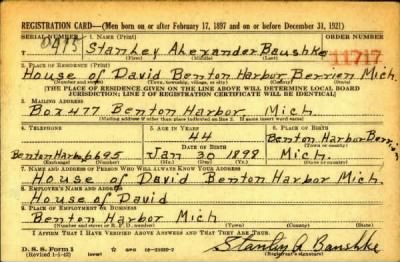 REGISTRATION CARD—(Men born on or after February 17, 1897 and on or before December 31, 1921)
SERIAL NUMBER 1. NAME (Print) ORDER NUMBER
T Stanley Alexander Baushke 11717
(First) (Middle) (Last)
2. PLACE OF RESIDENCE (Print)
House of David Benton Harbor Berrien Mich.
(Number and street) (Town, township, village, or city) (County) (State)
[THE PLACE OF RESIDENCE GIVEN ON THE LINE ABOVE WILL DETERMINE LOCAL BOARD
JURISDICTION; LINE 2 OF REGISTRATION CERTIFICATE WILL BE IDENTICAL]
3. MAILING ADDRESS
Box 477 Benton Harbor Mich.
[Mailing address if other than place indicated on line 2. If same insert word same]
4. TELEPHONE 5. AGE IN YEARS 6. PLACE OF BIRTH
44 Benton Harbor Berrien
DATE OF BIRTH (Town or county)
Benton Harb. 6695 Jan 30 1898 Mich.
(Exchange) (Number) (Mo.) (Day) (Yr.) (State or country)
7. NAME AND ADDRESS OF PERSON WHO WILL ALWAYS KNOW YOUR ADDRESS
House of David Benton Harbor Mich.
8. EMPLOYER'S NAME AND ADDRESS
House of David
9. PLACE OF EMPLOYMENT OR BUSINESS
Benton Harbor Mich
(Number and street or R. F. D. number) (Town) (County) (State)
I AFFIRM THAT I HAVE VERIFIED ABOVE ANSWERS AND THAT THEY ARE TRUE.
D. S. S. Form 1 GPO
(Revised 1-5-42) (over) Stanley A Baushke
(Registrant's signature)